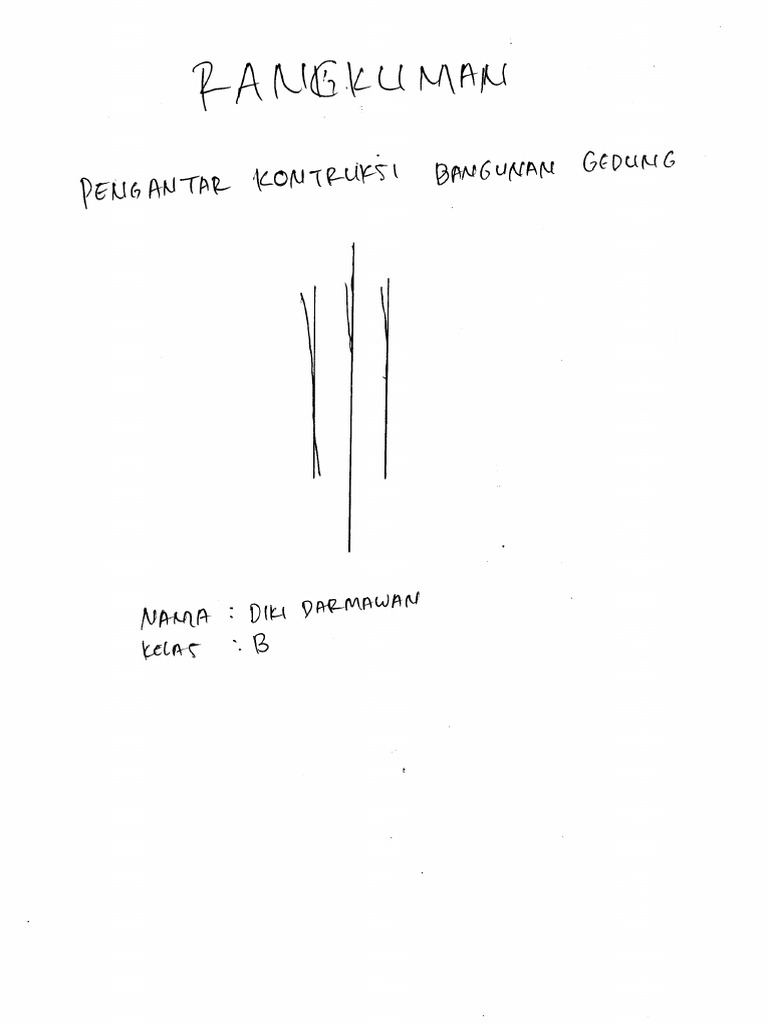 RANGKUMAN
PENGANTAR KONTRUKSI BANGUNAN GEDUNG
NAMA : DIKI DARMAWAN
KELAS : B